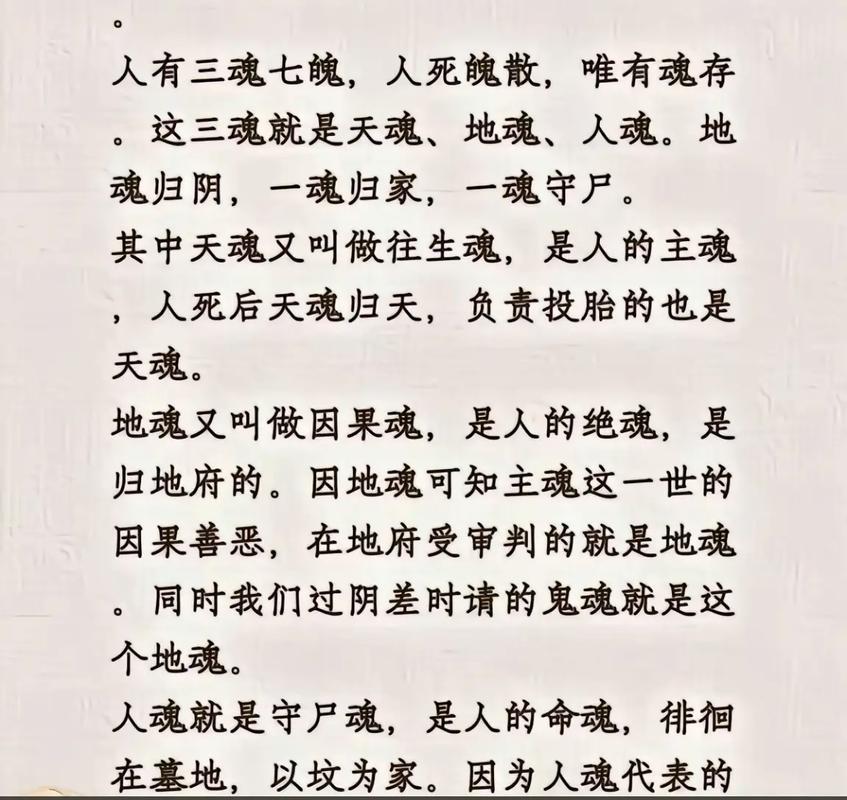 。
人有三魂七魄，人死魄散，唯有魂存
。这三魂就是天魂、地魂、人魂。地
魂归阴，一魂归家，一魂守尸。
其中天魂又叫做往生魂，是人的主魂
，人死后天魂归天，负责投胎的也是
天魂。
地魂又叫做因果魂，是人的绝魂，是
归地府的。因地魂可知主魂这一世的
因果善恶，在地府受审判的就是地魂
。同时我们过阴差时请的鬼魂就是这
个地魂。
人魂就是守尸魂，是人的命魂，徘徊
在墓地，以坟为家。因为人魂代表的